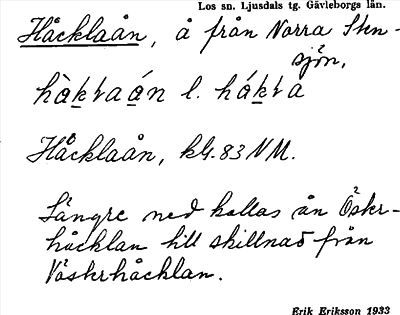 Los sn. Ljusdals tg. Gävleborgs län.
Håcklaån, å från Norra Sten-
sjön,
hàkɩaán l. hákɩa
Håcklaån, kbl. 83 NM.
Längre ned kallas ån Öster-
håcklan till skillnad från
Västerhåcklan.
Erik Eriksson 1933